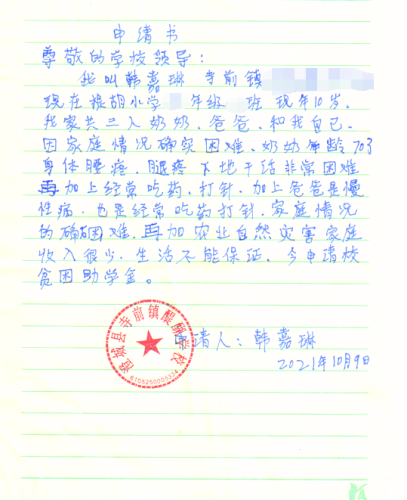 申请书
尊敬的学校领导：
我叫韩嘉琳 寺前镇
现在禄胡小学 年级 班 现年10岁.
我家共三人奶奶、爸爸、和我自己.
因家庭情况确实困难、奶奶年龄70多
身体腰疼、腿疼 下地干活非常困难
再加上经常吃药、打针、加上爸爸是慢
性病、也是经常吃药打针、家庭情况
的确困难、再加农业自然灾害家庭
收入很少、生活不能保证、今申请校
贫困助学金。
申请人：韩嘉琳
2021年10月9日
澄城县寺前镇醍醐学校
6105250005324